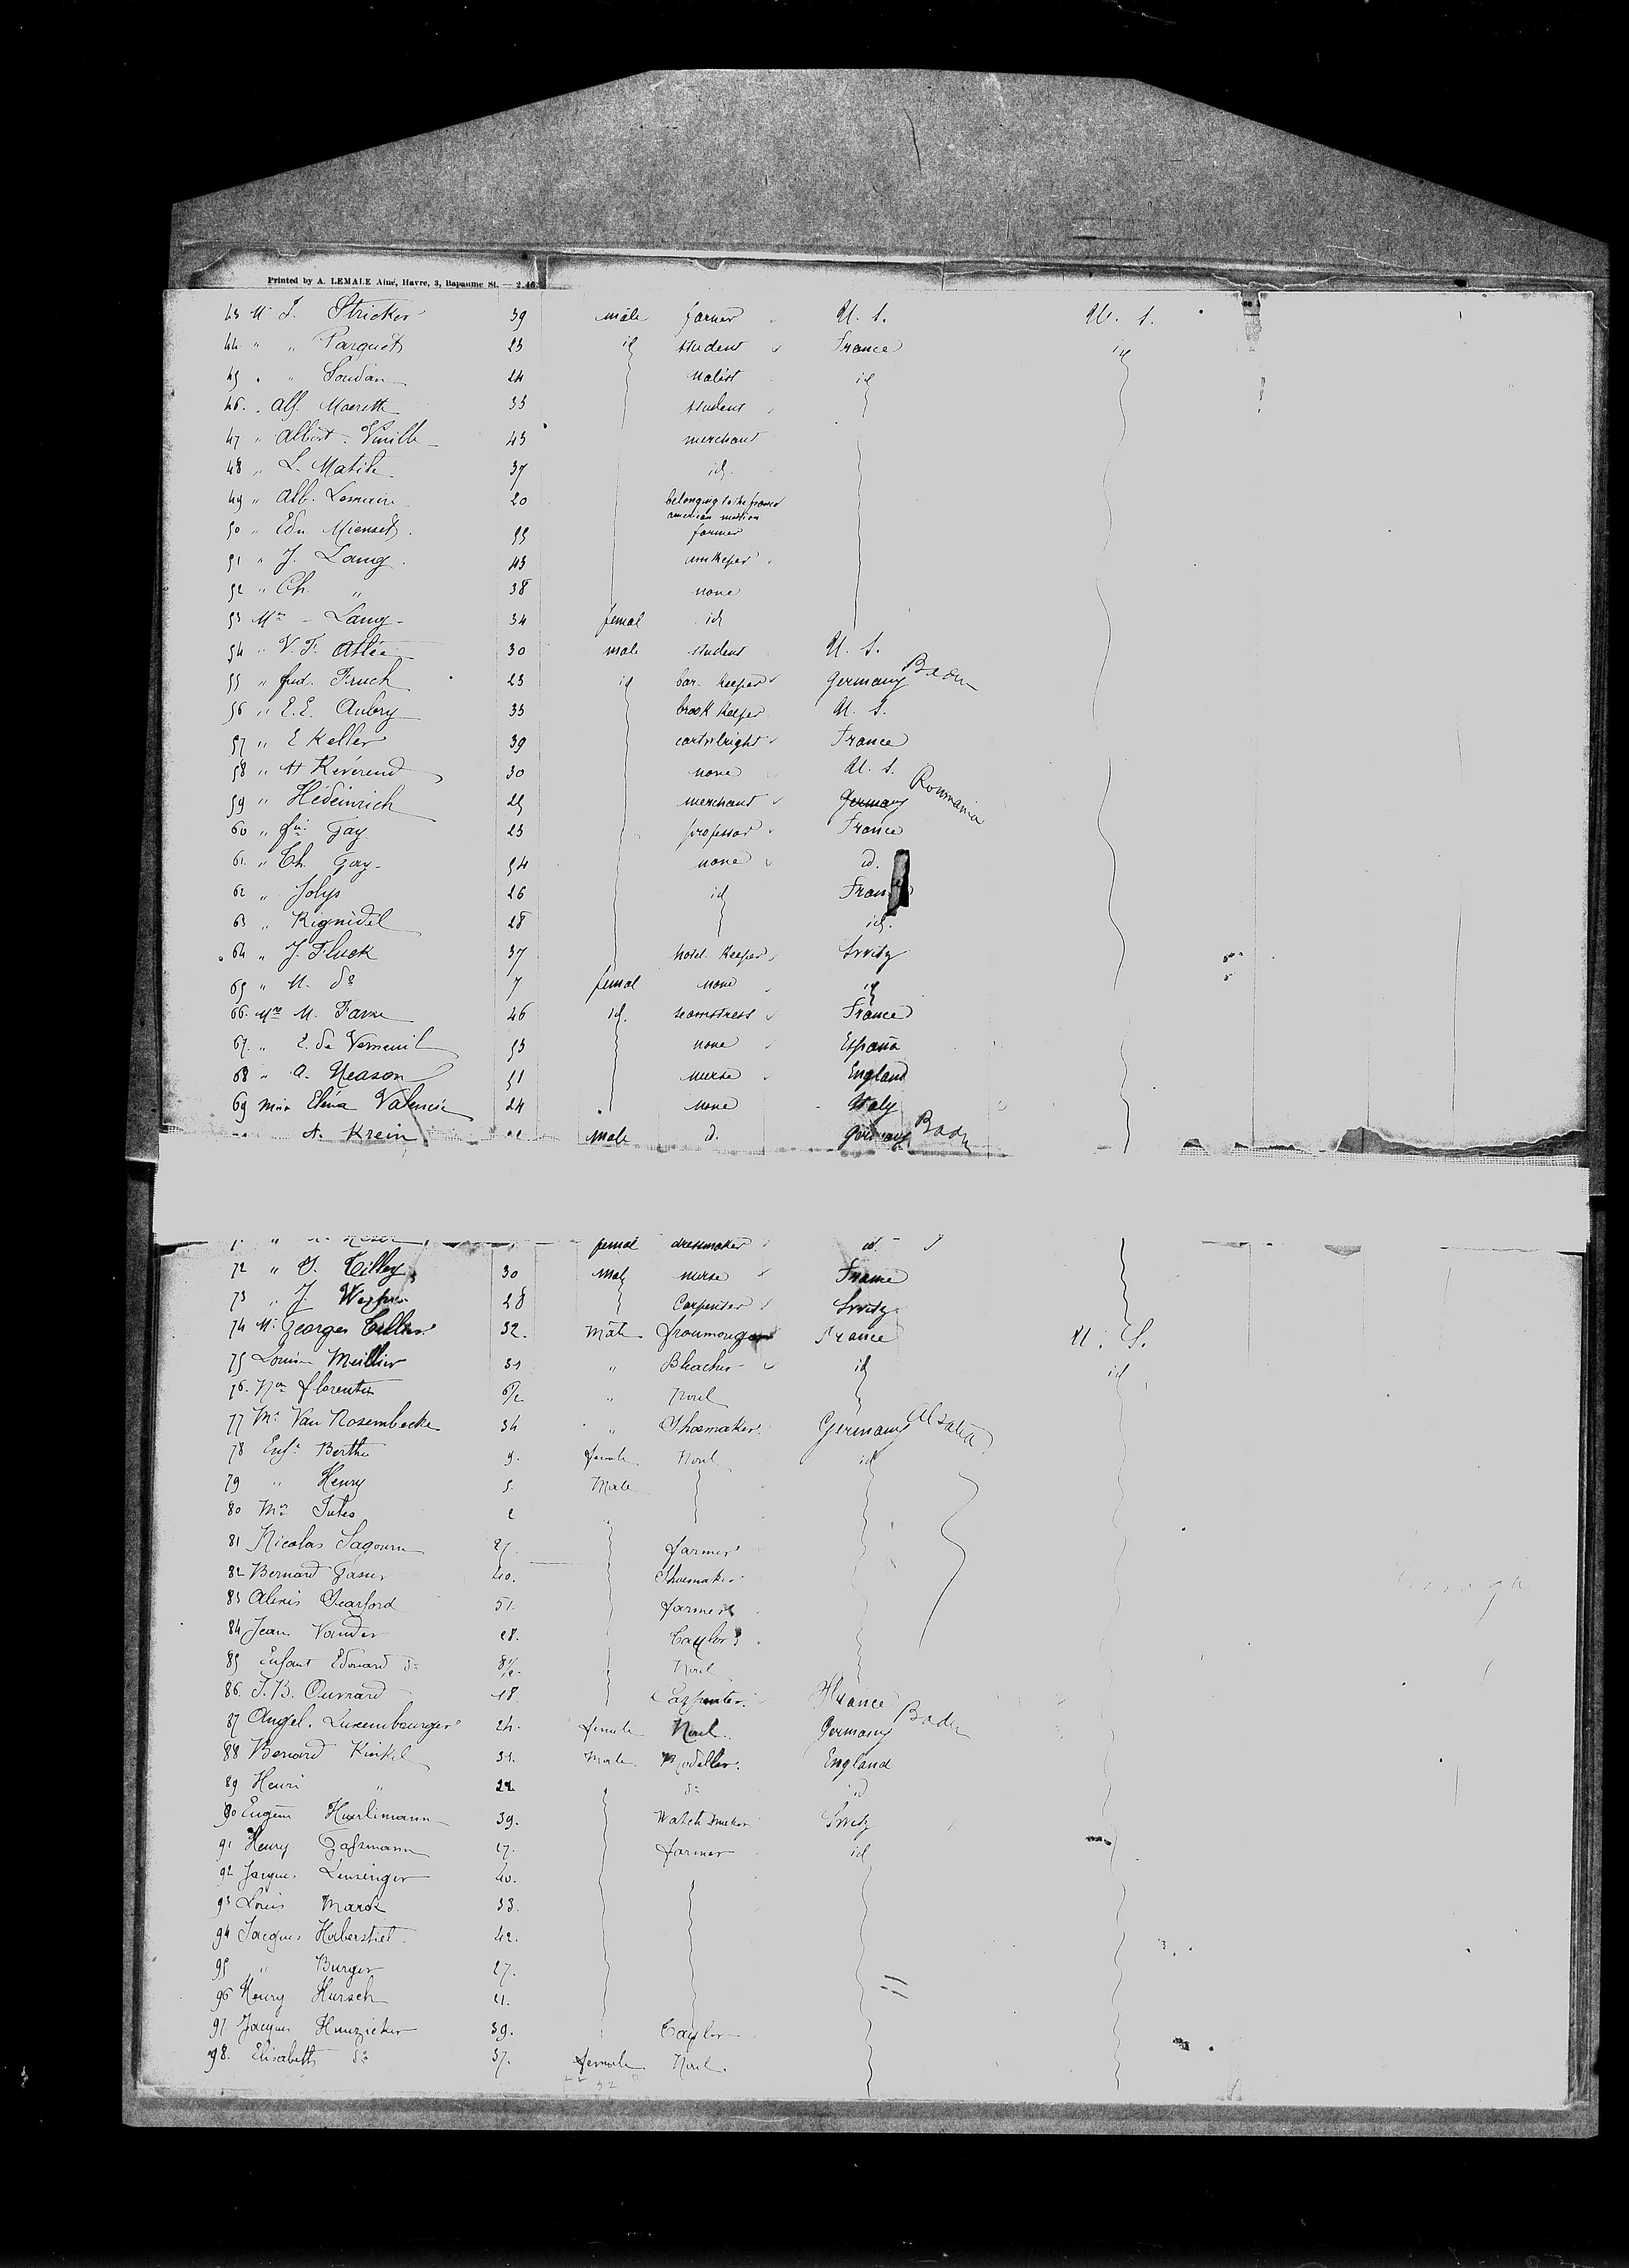 Printed by A. LEMALE Aîné, Havre, 3, Bapaume St. — 2.46
43 Mr J. Stricker 39 male farmer U. S. U. S.
44 " " Parquet 23 id student France id
45 " " Soudan 24 id
46. " Alf. Moerette 33 student
47 " Albert. Vuille 43 merchant
48 " L. Matile 37 id.
49 " Alb. Lemaire 20 belonging to the franco
american mission
50 " Edm. Mienset. 55 farmer
51 " J. Lang. 43 innkeper
52 " Ch. " 38 none
53 Mme - Lang - 34 femal id
54 " V. F. Atlée 30 male student U. S.
55 " fred. Fruch 23 id bar-keeper Germany Baden
56 " E. E. Aubry 33 book keeper U. S.
57 " E Keller 39 cartwbright France
58 " H Révérend 30 none U. S.
59 " Hédeinrich 25 merchant Germany Roumania
60 " Gay 23 professor France
61. " Ch. Gay - 54 none id.
62 " Jolys 26 id France
63 " Rignidel 28 id.
64 " J. Fluck 37 hotel-keeper Switz
65 " M. do 7 femal none id
66. Mme M. Favre 46 id. seamstress France
67. " E. de Verneuil 53 none España
68 " A. Neason 51 nurse England
69 Miss Eléna Valencia 24 none Italy
A. Krein male d. Germany Baden
femal dressmaker id.
72 " J. Tilley 30 male nurse France
73 " J. 28 Carpenter Switz
74 Mr Georges 32. Male Ironmonger France U. S.
75 Louis Meillier 31 " Bleacher id id
76. Florentin 6/12 " Noul
77 Mr Van Rosembecke 34 " Shoemaker. Germany Alsatia
78 Enft Berthe 9. female Noul id
79 " Henry 5. Male
80 Mr Jules 2
81 Nicolas Sagourin 27. farmer
82 Bernard Gasser 40. Shoemaker
83 Alexis Dearford 51. farmer
84 Jean Vander 28. Taylor
85 Enfant Edouard do 8 1/2. Noul
86. J. B. Ouvrard 18. Carpenter. France
87 Angel. Luxembourger 24. female Noul. Germany Baden
88 Bernard Kinkel 31. Male Modeller. England
89 Henri " 22 do id
90 Eugène Hurlimann 39. Watchmaker Switz
91 Henry Gassmann 27. farmer id
92 Jacques Lensinger 40.
93 Louis Marck 33.
94 Jacques Haberstiet 42.
95 " Burger 27.
96 Henry Hursch 21.
97. Jacques Hunzicker 39. Taylor
98. Elisabeth do 37. female Noul.